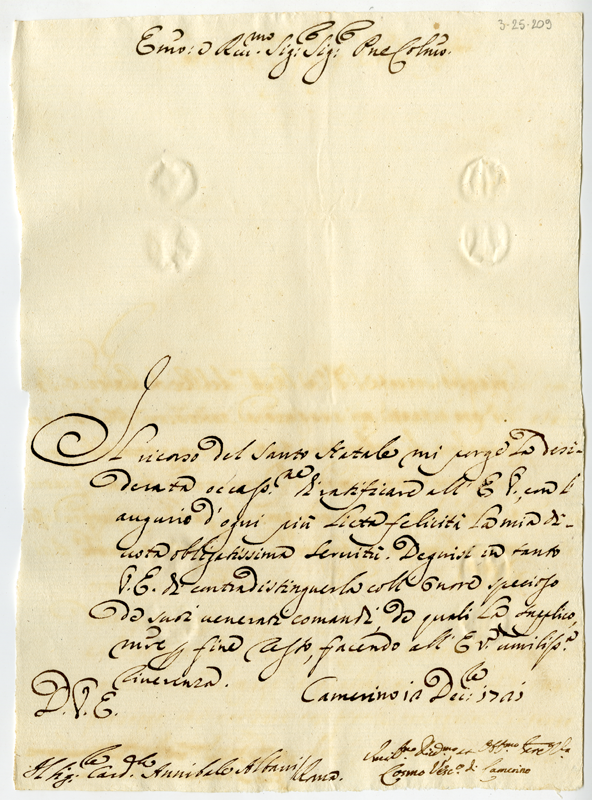 3-25-209
Emo: e Rev.mo Sig: Sig: Pne Colmo.
Il ricorso del Santo Natale mi porge la desi-
derata occass.ne di ratificare all' E V. con l'
augurio d'ogni più lieta felicità la mia di-
uota obligatissima seruitù. Degnisi in tanto
V. E. di contradistinguerla coll' onore specioso
de suoi uenerati comandi, de quali la supplico,
mre fine resto, facendo all' E V. umiliss.a
riuerenza.
Camerino Dec:
D. V. E.
Il Sig: Card.le Annibale Albani Roma.
Cosmo Vesc.o di Camerino